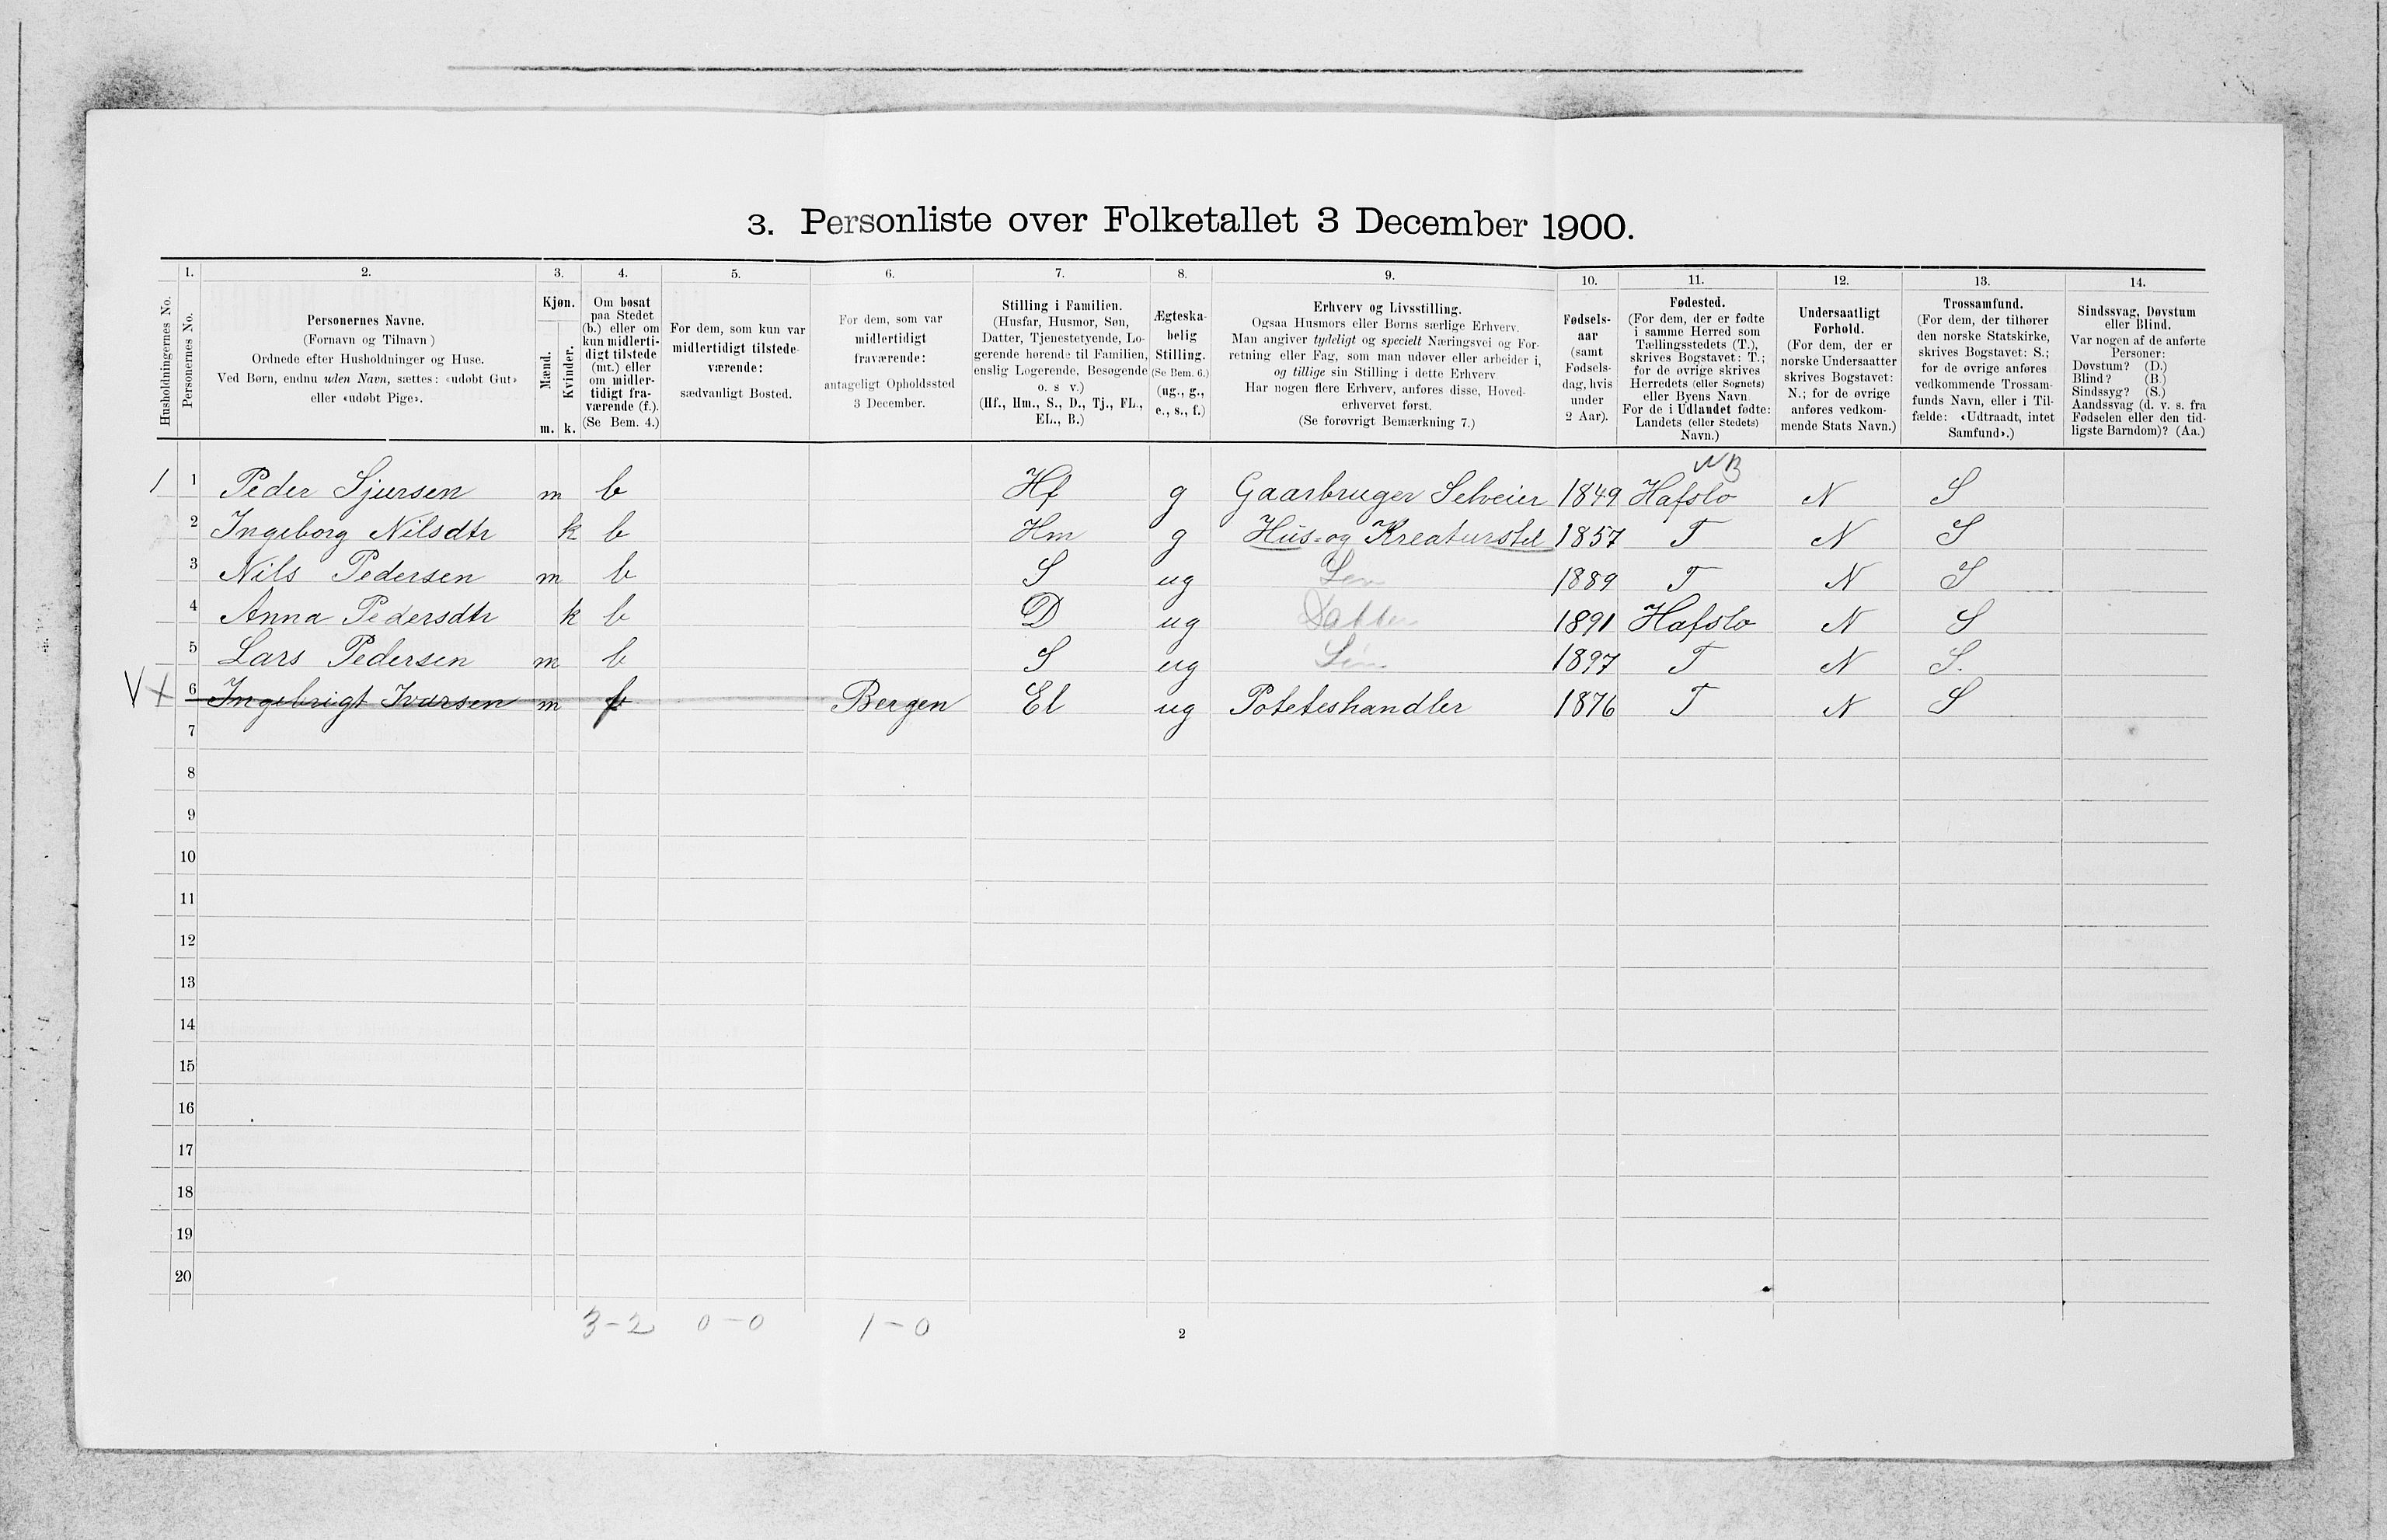 3. Personliste over Folketallet 3 December 1900.
1. 2. 3. 4. 5. 6. 7. 8. 9. 10. 11. 12. 13. 14.
Husholdningernes No.
Personernes No.
Personernes Navne.
(Fornavn og Tilnavn)
Ordnede efter Husholdninger og Huse.
Ved Børn, endnu uden Navn, sættes: «udøbt Gut»
eller «udøbt Pige».
Kjøn.
Mænd.
Kvinder.
m. k.
Om bosat
paa Stedet
(b.) eller om
kun midlerti-
digt tilstede
(mt.) eller
om midler-
tidigt fra-
værende (f.).
(Se Bem. 4.)
For dem, som kun var
midlertidigt tilstede-
værende:
sædvanligt Bosted.
For dem, som var
midlertidigt
fraværende:
antageligt Opholdssted
3 December.
Stilling i Familien.
(Husfar, Husmor, Søn,
Datter, Tjenestetyende, Lo-
gerende hørende til Familien,
enslig Logerende, Besøgende
o. s v.)
(Hf., Hm., S., D., Tj., FL.,
EL., B.)
Ægteska-
belig
Stilling.
(Se Bem. 6.)
(ug., g.,
e., s., f.)
Erhverv og Livsstilling.
Ogsaa Husmors eller Børns særlige Erhverv.
Man angiver tydeligt og specielt Næringsvei og For-
retning eller Fag, som man udøver eller arbeider i,
og tillige sin Stilling i dette Erhverv
Har nogen flere Erhverv, anføres disse, Hoved-
erhvervet først.
(Se forøvrigt Bemærkning 7.)
Fødsels-
aar
(samt
Fødsels-
dag, hvis
under
2 Aar).
Fødested.
(For dem, der er fødte
i samme Herred som
Tællingsstedets (T.),
skrives Bogstavet: T.;
for de øvrige skrives
Herredets (eller Sognets)
eller Byens Navn
For de i Udlandet fødte:
Landets (eller Stedets)
Navn.)
Undersaatligt
Forhold.
(For dem, der er
norske Undersaatter
skrives Bogstavet:
N.; for de øvrige
anføres vedkom-
mende Stats Navn.)
Trossamfund.
(For dem, der tilhører
den norske Statskirke,
skrives Bogstavet: S.;
for de øvrige anføres
vedkommende Trossam-
funds Navn, eller i Til-
fælde: «Udtraadt, intet
Samfund».)
Sindssvag, Døvstum
eller Blind.
Var nogen af de anførte
Personer:
Døvstum? (D.)
Blind? (B.)
Sindssyg? (S.)
Aandssvag (d. v. s. fra
Fødselen eller den tid-
ligste Barndom)? (Aa.)
NB
1 1 Peder Sjursen m b Hf g Gaarbruger Selveier 1849 Hafslo N S
2 Ingeborg Nilsdtr k b Hm g Hus-og Kreaturstel 1857 T N S
3 Nils Pedersen m b S ug Søn 1889 T N S
4 Anna Pedersdtr k b D ug Datter 1891 Hafslo N S
5 Lars Pedersen m b S ug Søn 1897 T N S.
V + 6 Ingebrigt Ivarsen m f Bergen El ug Poteteshandler 1876 T N S
7
8
9
10
11
12
13
14
15
16
17
18
19
20
3-2 0-0 1-0
2